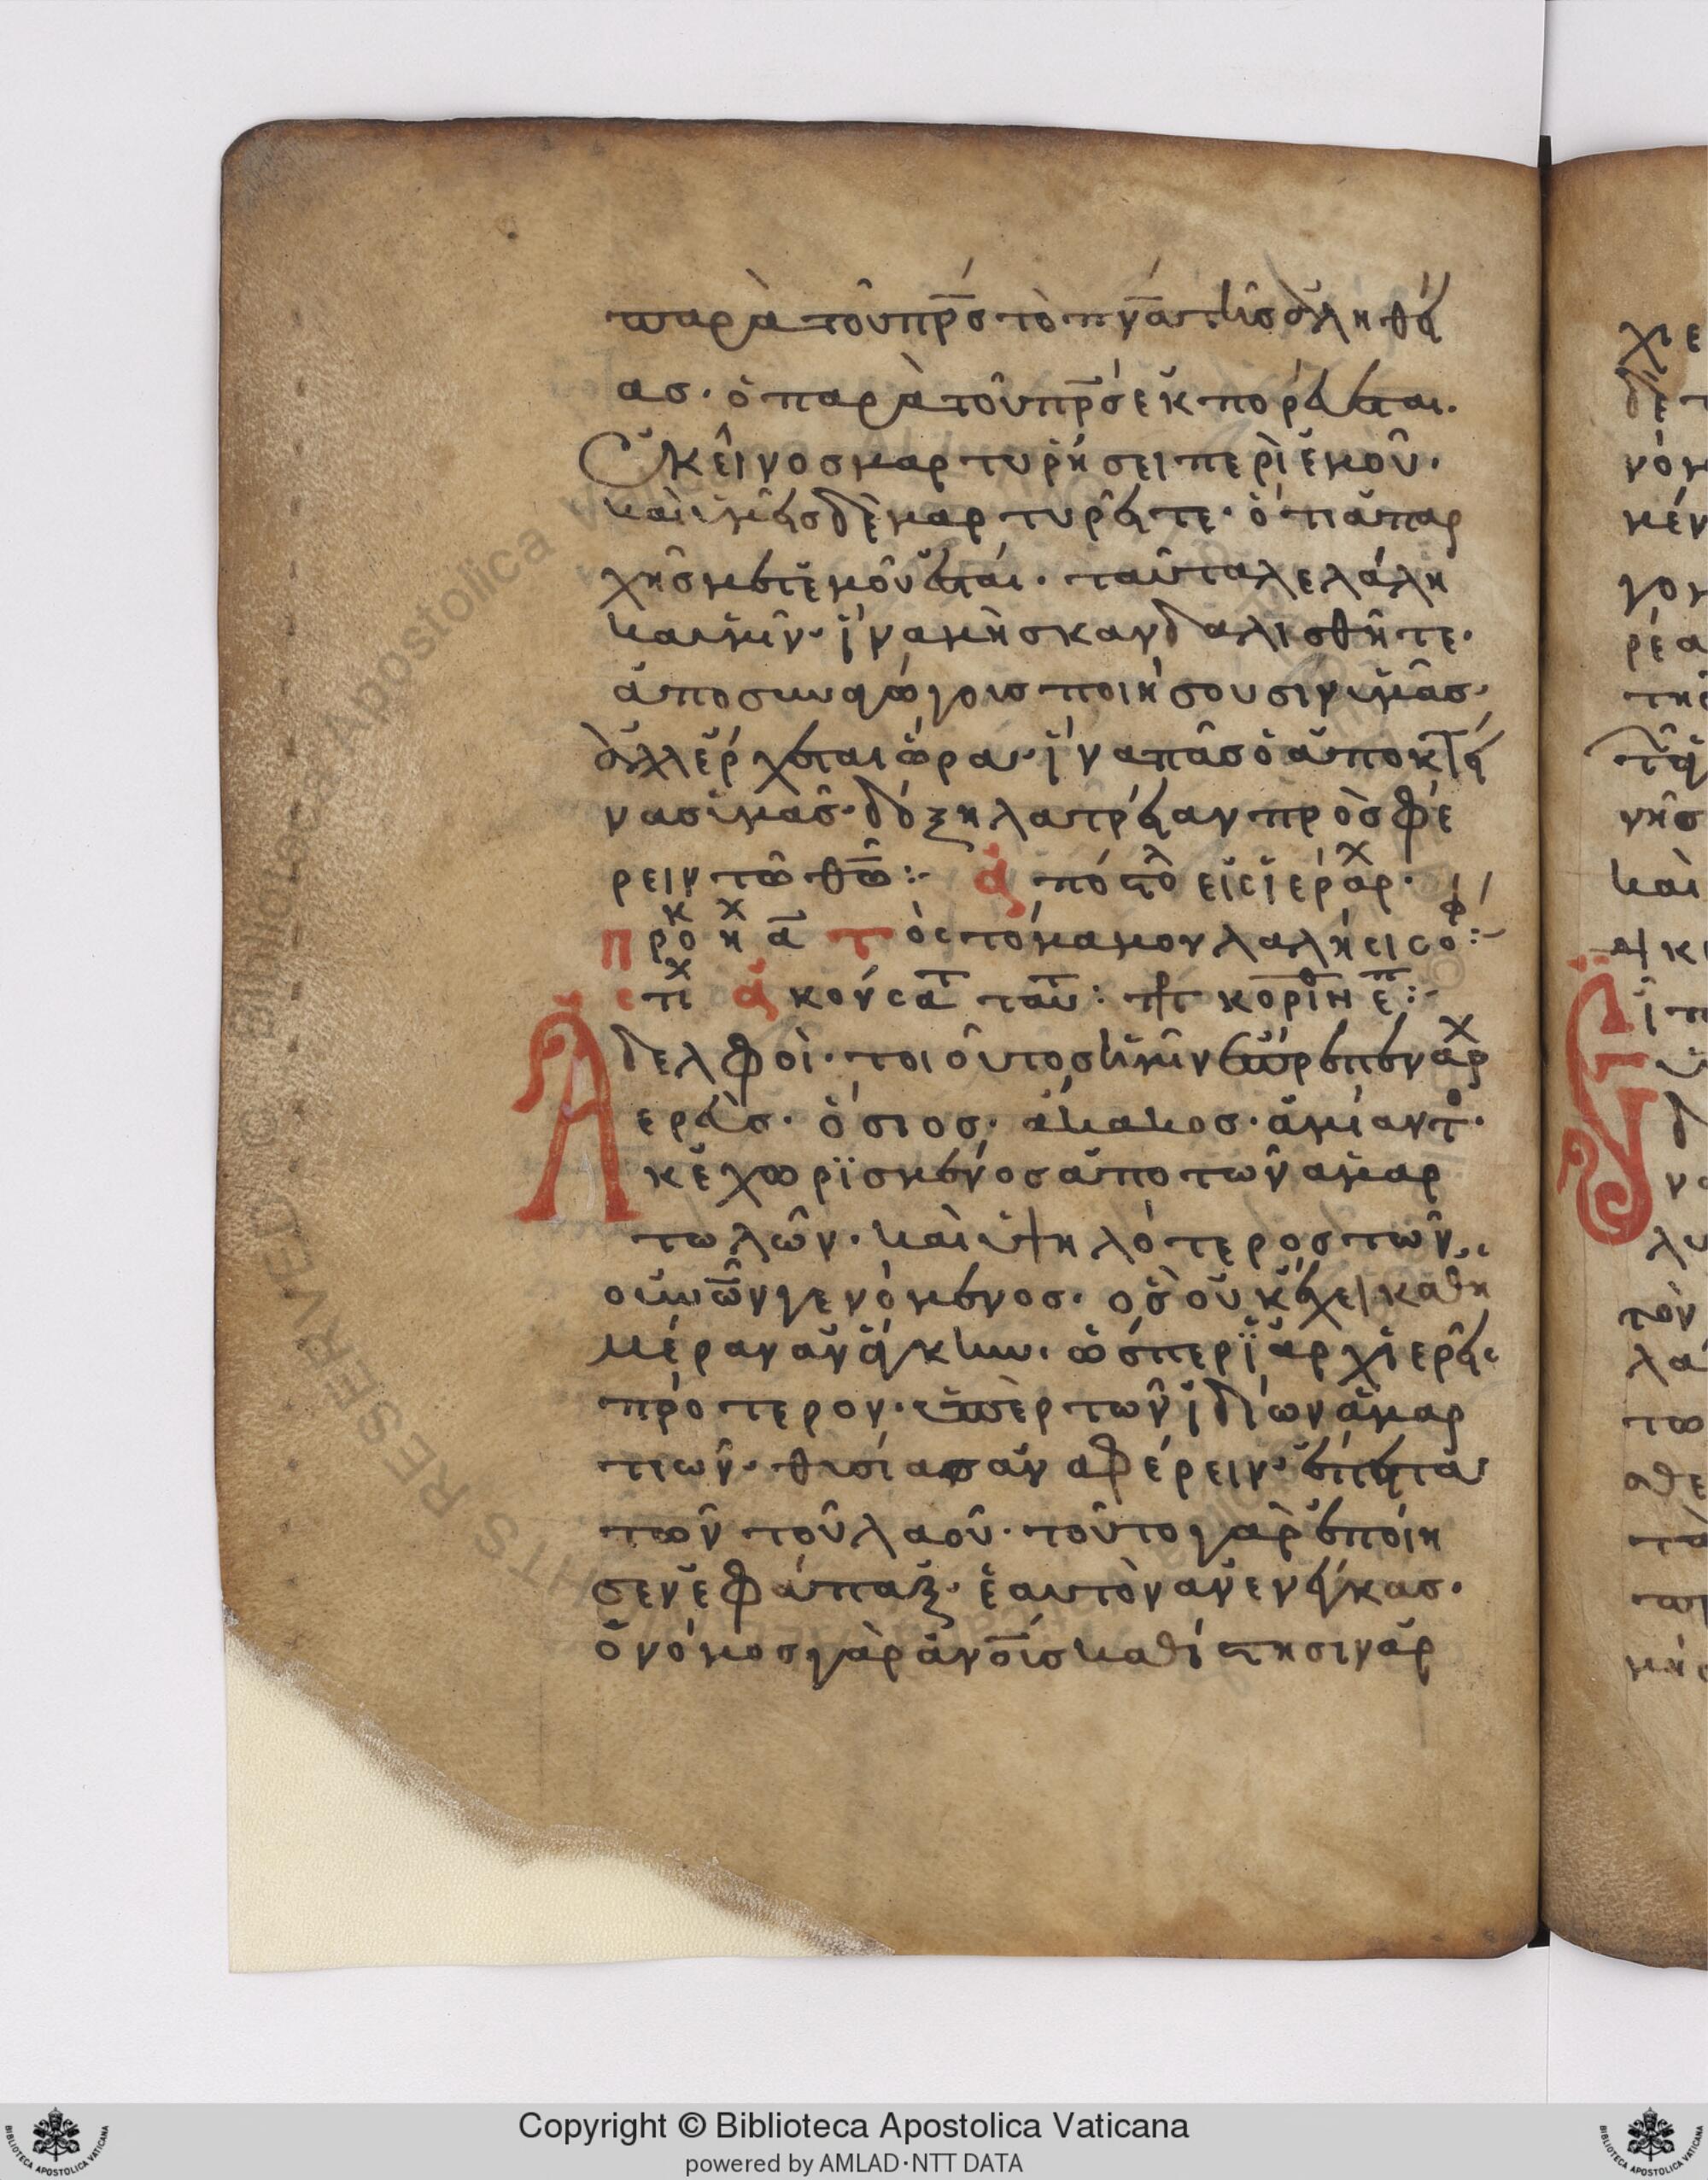 παρὰ τοῦ πρ̅σ τὸ πν̅α τῆσ ἀληθεί
ασ· ὁ παρὰ τοῦ πρ̅σ ἐκπορεύεται·
Ἐκεῖνοσ μαρτυρήσει περὶ ἐμοῦ·
καὶ ὑμεῖσ δὲ μαρτυρεῖτε· ὅτι ἀπαρ
χῆσ μετ ἐμοῦ ἐσται· ταῦτα λελάλη
κα ὑμῖν· ἵνα μὴ σκανδαλισθῆτε·
ἀποσυναγώγουσ ποιήσουσιν ὑμᾶσ·
ἀλλ ἔρχεται ὥρα· ἵνα πᾶσ ὁ ἀποκτεί
νασ ὑμᾶσ· δόξη λατρείαν προσφέ
ρειν τῶ θ̅ω̅:·
πρὸσ τὸ στόμα μου λαλήσει σοφί:·
στι ἀκούσατ ταῦ: πρ κορινθ
Ἀδελφοὶ· τοιοῦτοσ ἡμῖν ἔπρεπεν ἀρχ
ερεὺσ· ὅσιοσ· ἄκακοσ· ἀμίαντο·
κεχωρϊσμένοσ ἀπο τῶν ἁμαρ
τωλῶν· καὶ ὑψηλότεροσ τῶν
οὐν̅ῶν γενόμενοσ· ὃσ οὐκ ἔχει καθη
μέραν ἀνάγκην· ὥσπερ ϊ ἀρχιερεῖσ
πρότερον· ὑπὲρ τῶν ἰδίων ἁμαρ
τιῶν· θυσίασ ἀναφέρειν· ἔπειτα
τῶν τοῦ λαοῦ· τοῦτο γὰρ ἐποίη
σεν ἐφάπαξ· ἑαυτὸν ἀνενέγκασ·
ὁ νόμοσ γὰρ ἀν̅ο̅υσ καθίστησιν ἀρ
Copyright © Biblioteca Apostolica Vaticana
powered by AMLAD·NTT DATA